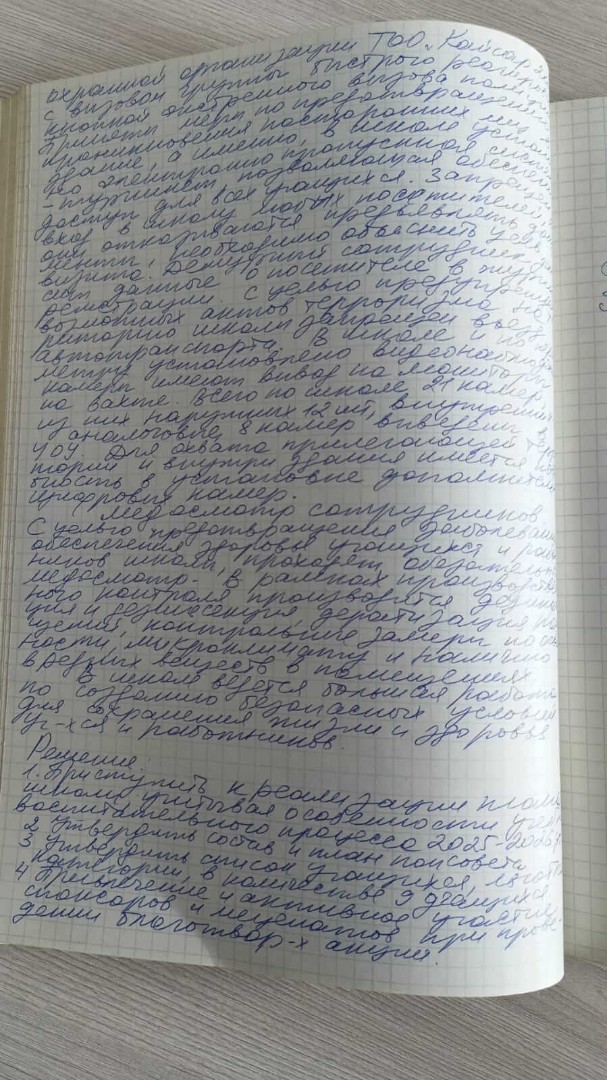 охранной организации ТОО „Кайсар
с вызовом группы быстрого реагир
кнопкой экстренного вызова полиц
Приняты меры по предотвращени
проникновения посторонних лиц
здание, а именно, в школе устан
электронно пропускная сист
- турникет, позволяющая обеспеч
доступ для всех учащихся. Запрещен
вход в школу любых посетителей
они отказываются предъявлять до
менты, необходимо объяснить цель
визита. Дежурный сотрудник
сит данные о посетителе в журн
регистрации. С целью предупреж
возможных актов терроризма на т
риторию школы запрещен въезд
автотранспорта. В школе и по
метру установлено видеонаблюд
камеры имеют вывод на мониторы
на вахте. Всего по школе 21 камер
из них наружных 12 шт, внутренних
аналоговые, 8 камер выведены в
ЧОУ. Для охвата прилегающей терр
тории и внутри здания имеется
бность в установке дополнительн
цифровых камер.
Медосмотр сотрудников
С целью предотвращения заболевани
обеспечения здоровья учащихся и раб
ников школы, проходят обязательн
медосмотр. В рамках производств
ного контроля производятся дезинф
ция и дезинсекция, дератизация по
щений, контрольные замеры по ос
ности, микроклимату и наличию
вредных веществ в помещениях
В школе ведется большая работа
по созданию безопасных условий
для сохранения жизни и здоровья
уч-хся и работников.
Решение:
1. Приступить к реализации плана
школы учитывая особенности учебн
воспитательного процесса 2025-2026
2. Утвердить состав и план попсовета
3. Утвердить список учащихся, льготн
категории в количестве 9 учащихся
4. Привлечение и активное участие
спонсоров и меценатов при прове-
дении благотвор-х акций.